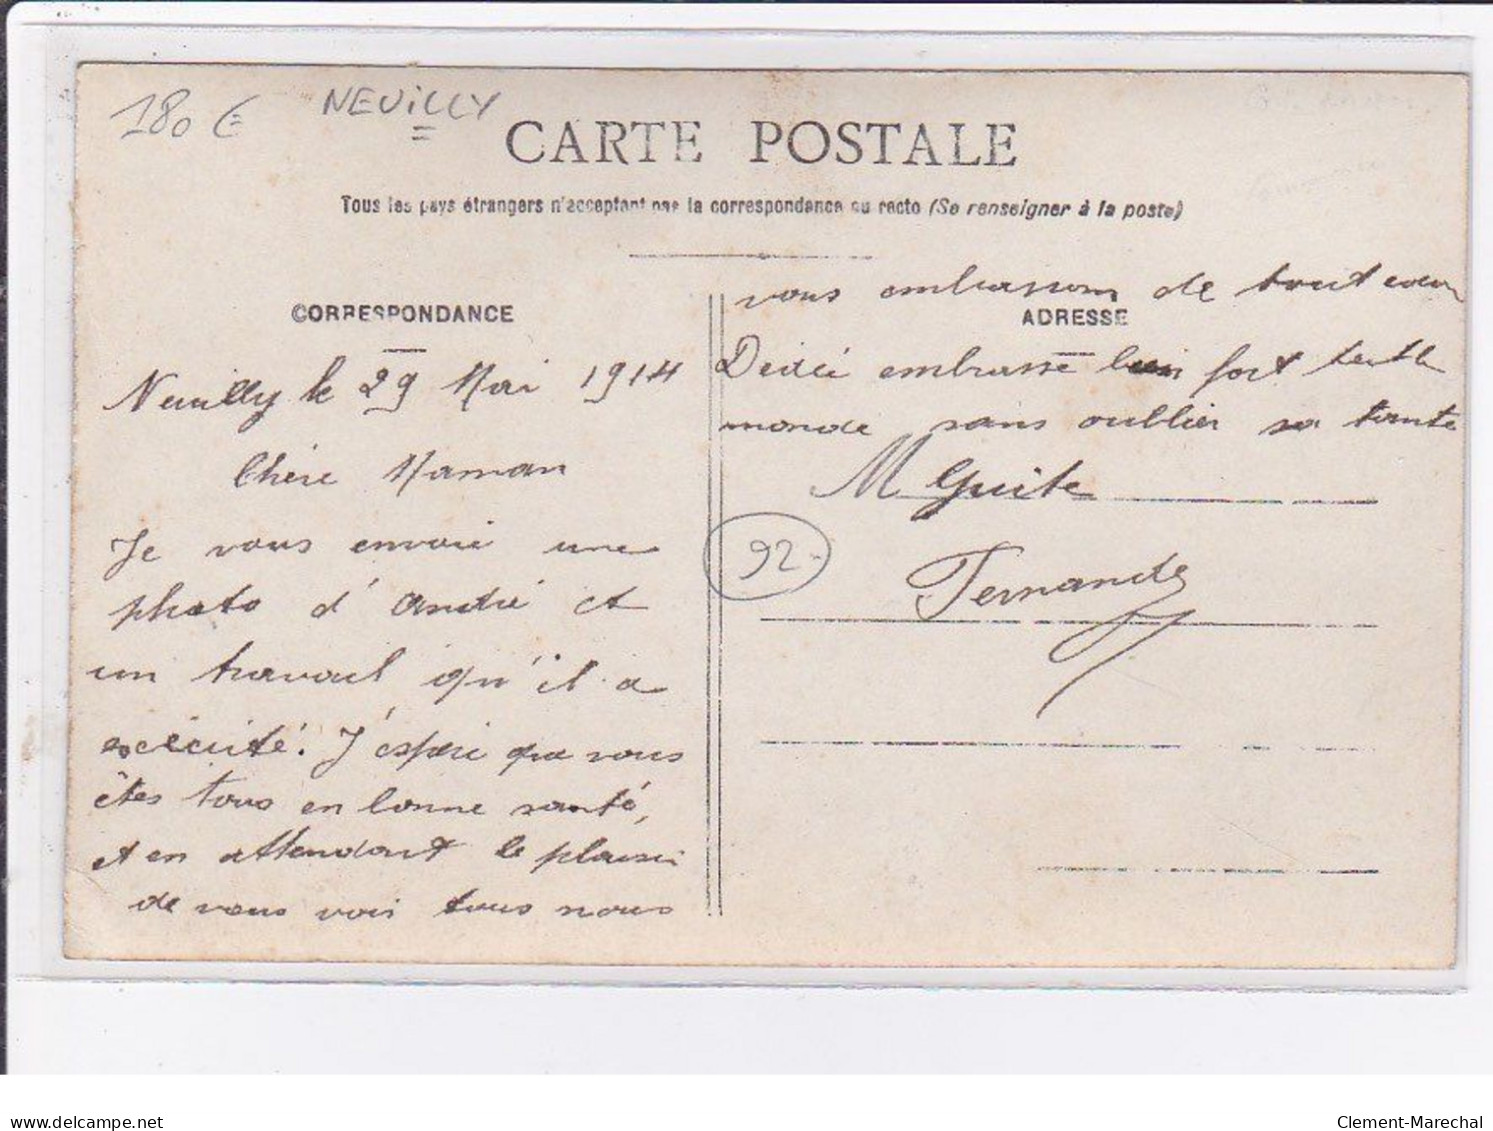 180 €
NEUILLY
CARTE POSTALE
Tous les pays étrangers n'acceptant pas la correspondance au recto (Se renseigner à la poste)
CORRESPONDANCE
Neuilly le 29 Mai 1914
Chère Maman
Je vous envoie une
photo d'André et
un travail qu'il a
exécuté. J'espère que vous
êtes tous en bonne santé,
et en attendant le plaisir
de vous voir tous nous
vous embrassons de tout cœur
ADRESSE
Dédé embrasse bien fort tout le
monde sans oublier sa tante
M Guite
92
Fernande
delcampe.net
Clement-Marechal